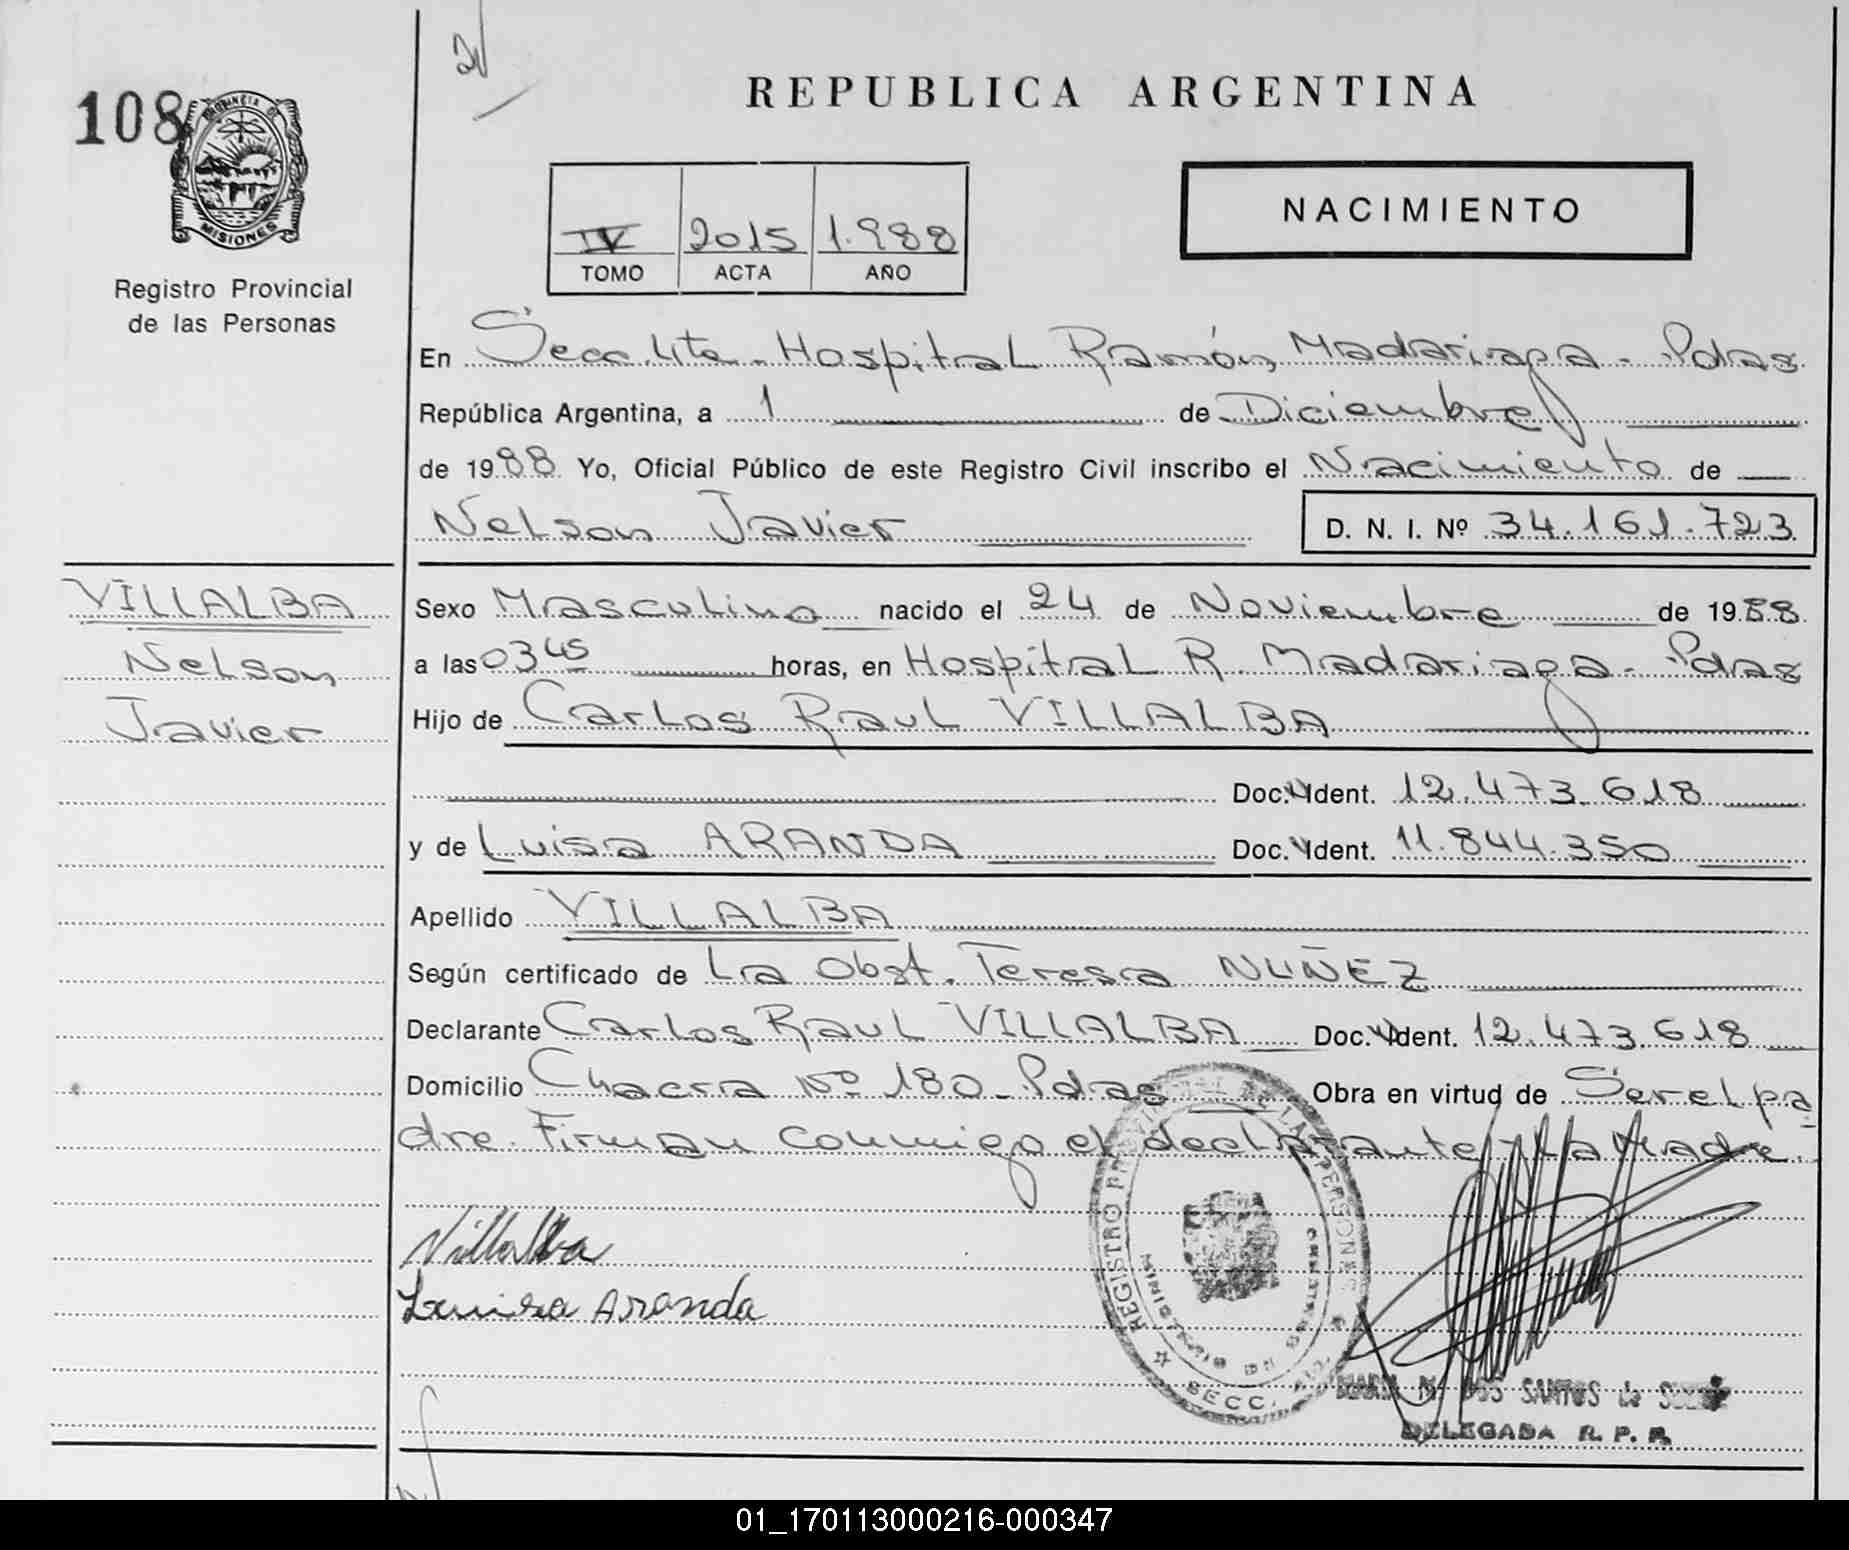 108
PROVINCIA DE
MISIONES
Registro Provincial
de las Personas
REPUBLICA ARGENTINA
IV 2015 1.988
TOMO ACTA AÑO
NACIMIENTO
En Secc. 4ta. Hospital Ramón Madariaga - Pdas
República Argentina, a 1 de Diciembre
de 1988 Yo, Oficial Público de este Registro Civil inscribo el Nacimiento de
Nelson Javier D. N. I. Nº 34.161.723
VILLALBA
Nelson
Javier
Sexo Masculino nacido el 24 de Noviembre de 1988
a las 03 45 horas, en Hospital R. Madariaga - Pdas
Hijo de Carlos Raul VILLALBA
Doc. Ident. 12.473.618
y de Luisa ARANDA Doc. Ident. 11.844.350
Apellido VILLALBA
Según certificado de La Obst. Teresa NUÑEZ
Declarante Carlos Raul VILLALBA Doc. Ident. 12.473.618
Domicilio Chacra Nº 180 - Pdas Obra en virtud de Ser el pa
dre. Firman conmigo el declarante y la Madre.
Villalba
Luisa Aranda
REGISTRO PROVINCIAL DE LAS PERSONAS
SECC.
DOS SANTOS de
DELEGADA R. P. P.
01_170113000216-000347